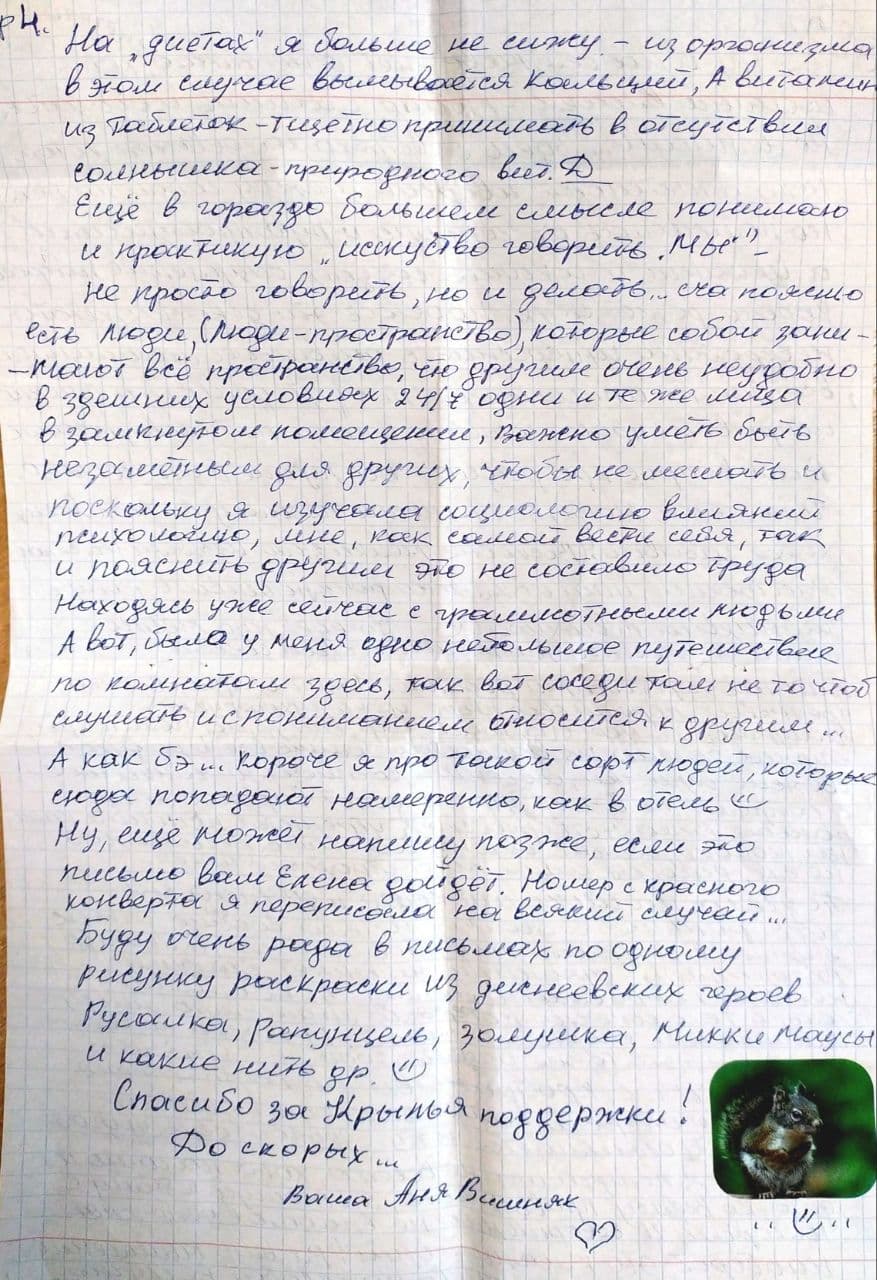 р 4.
На „диетах" я больше не сижу – из организма
в этом случае вымывается Кальций, А витамин
из таблеток – тщетно принимать в отсутствии
солнышка – природного вит. Д
Ещё в гораздо большем смысле понимаю
и практикую „исскуство говорить „МЫ"" –
не просто говорить, но и делать... сча поясню
есть люди, (люди-пространство), которые собой зани-
-мают всё пространство, что другим очень неудобно
в здешних условиях 24/7 одни и те же лица
в замкнутом помещении, важно уметь быть
незаметным для других, чтобы не мешать и
поскольку я изучала социологию влияний
психологию, мне, как самой вести себя, так
и пояснить другим это не составило труда
Находясь уже сейчас с грамотными людьми
А вот, была у меня одно небольшое путешествие
по комнатам здесь, так вот соседи там не то чтоб
слушать и с пониманием относится к другим...
А как бэ... короче я про такой сорт людей, которые
сюда попадают намеренно, как в отель
Ну, ещё может напишу позже, если это
письмо вам Елена дойдёт. Номер с красного
конверта я переписала на всякий случай...
Буду очень рада в письмах по одному
рисунку раскраски из диснеевских героев
Русалка, Рапунцель, Золушка, Микки Маусы
и какие нить др.
Спасибо за Крылья поддержки!
До скорых...
Ваша Аня Вишняк